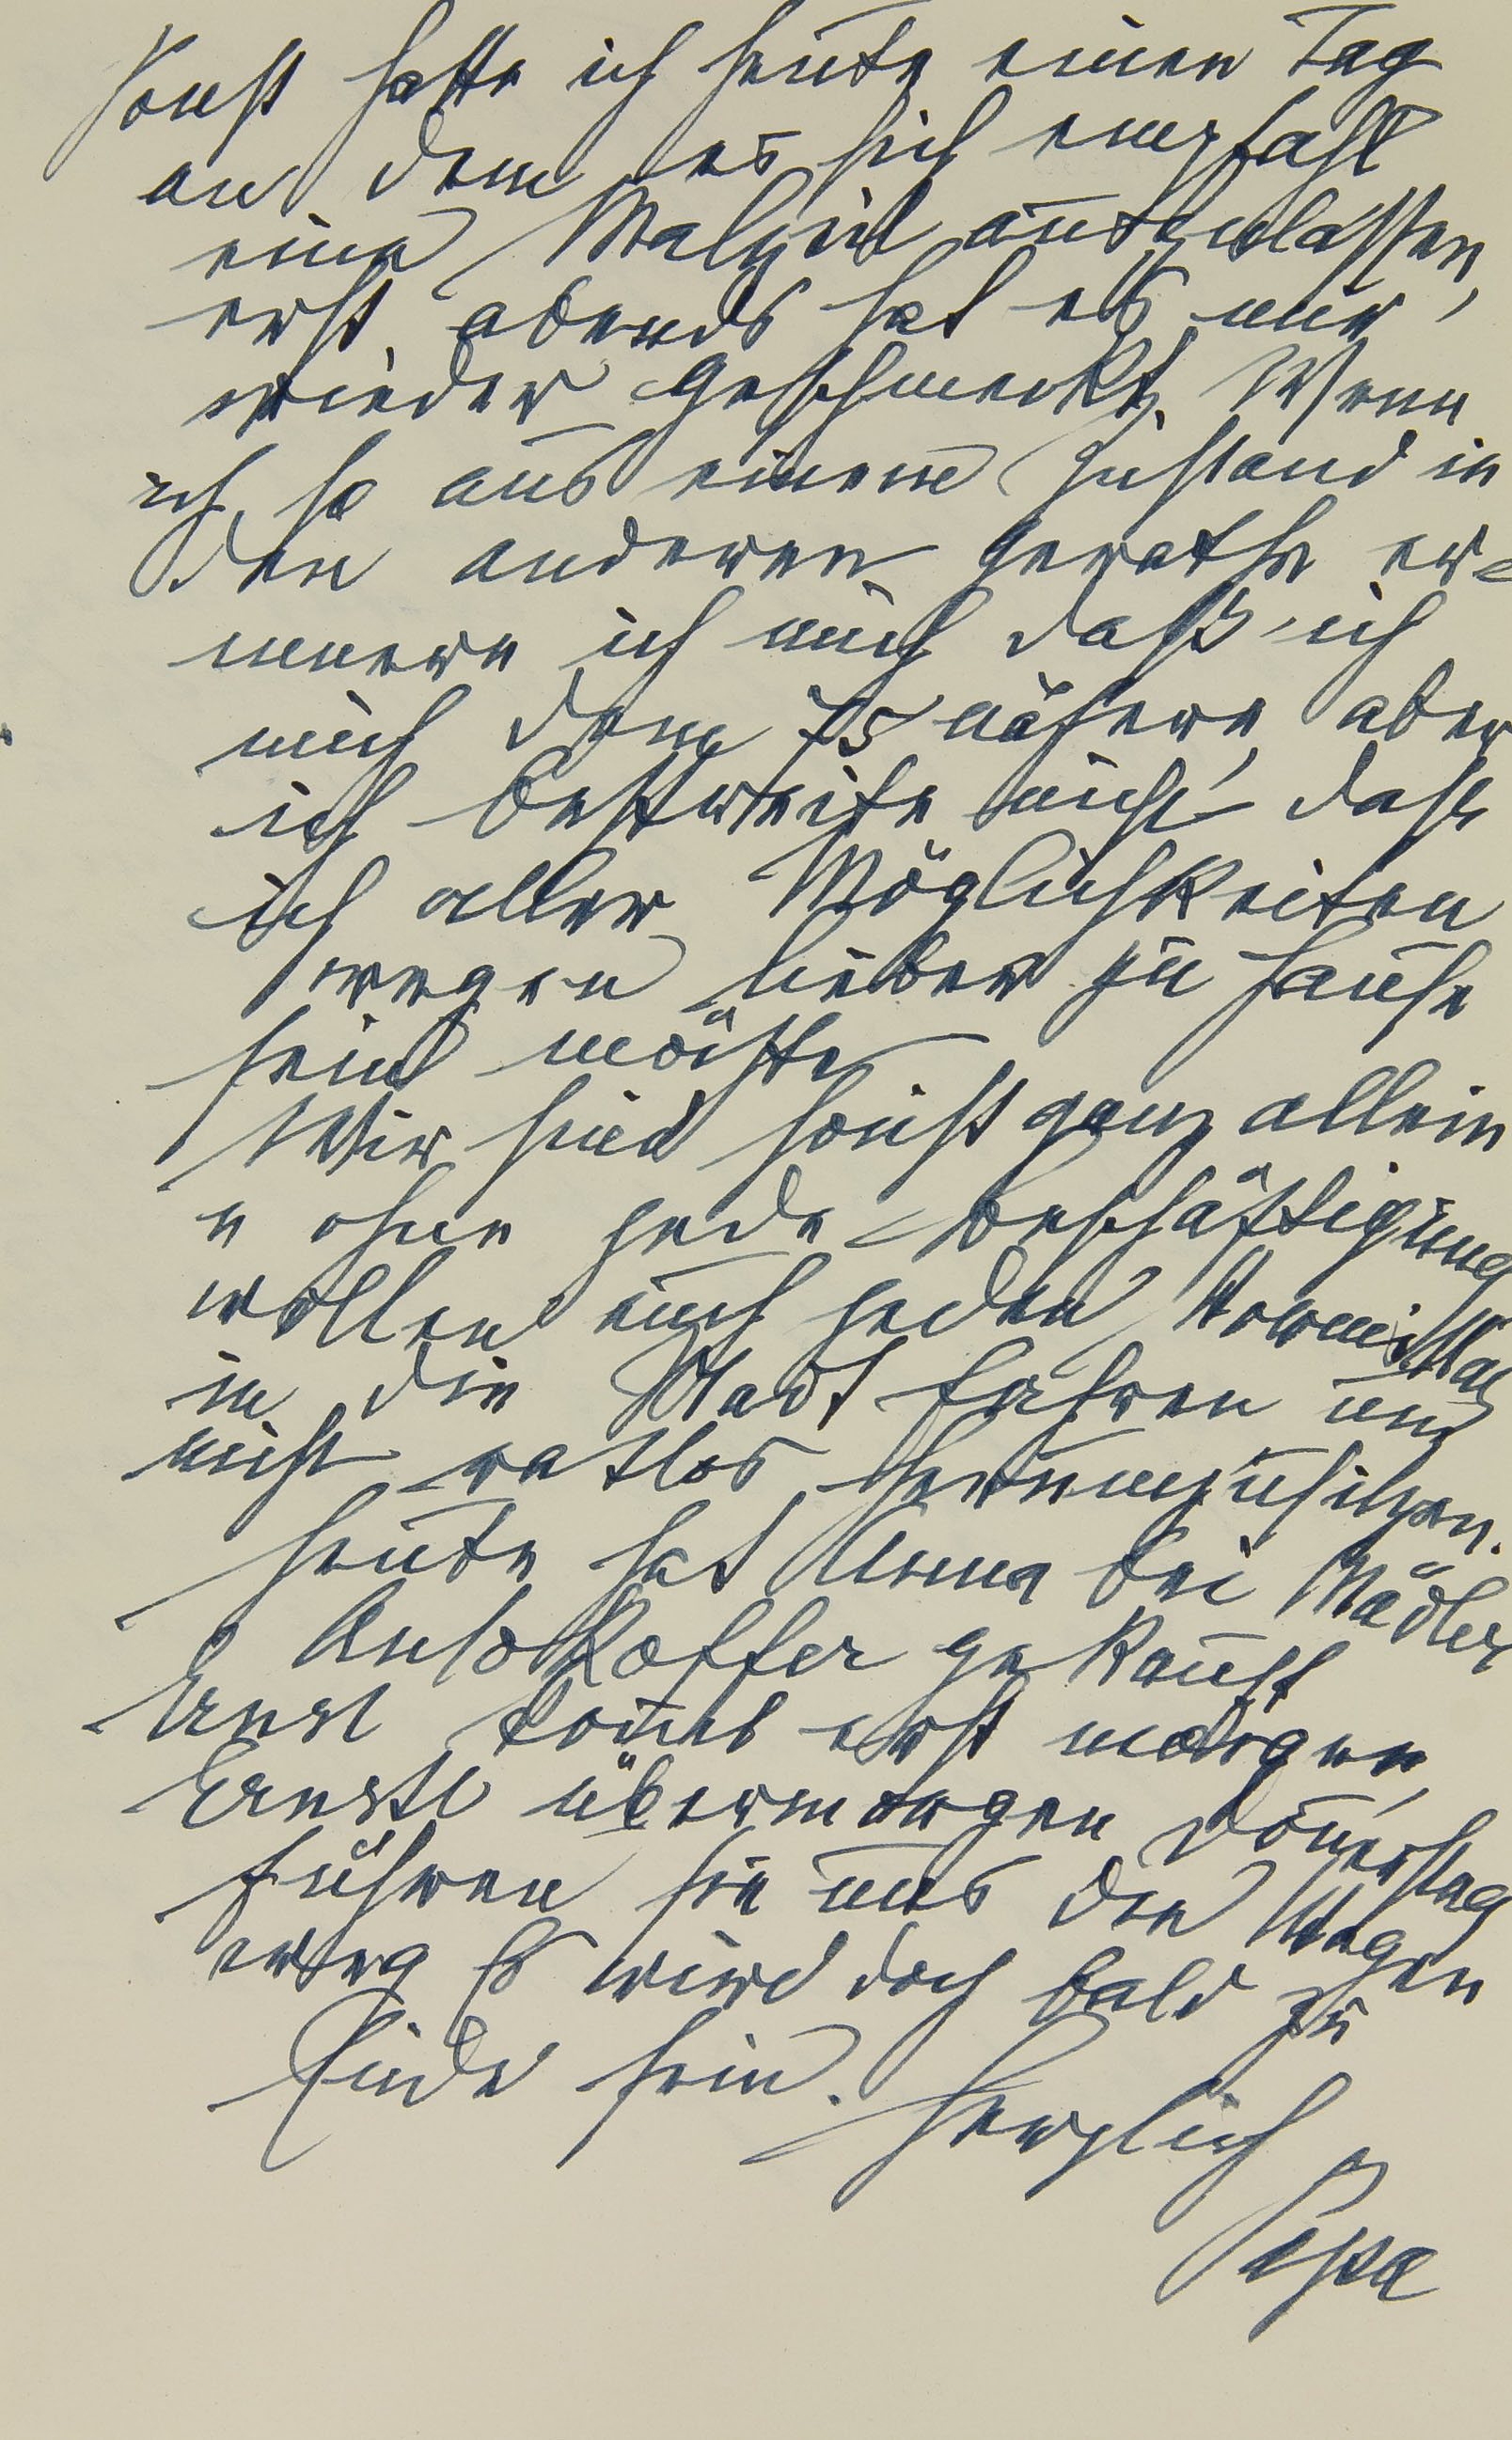 Sonst hatte ich heute einen Tag
an dem es sich empfahl
eine Malzeit auszulassen,
erst abends hat es mir
wieder geschmeckt. Wenn
ich so aus einem Zustand in
den anderen gerathe er-
innere ich mich daß ich
mich dem 75 nähere, aber
ich begreife nicht daß
ich aller Möglichkeiten
wegen lieber zu Hause
sein möchte
Wir sind sonst ganz allein
u ohne jede Beschäftigung
wollen auch jeden Vormittag
in die Stadt fahren um
nicht ratlos herumzusitzen.
Heute hat Anna bei Mädler
Autokoffer gekauft
Ernst kom̄t erst morgen,
Ernstl übermorgen, Don̄erstag
führen sie uns den Wagen
weg Es wird doch bald zu
Ende sein. Herzlich
Papa